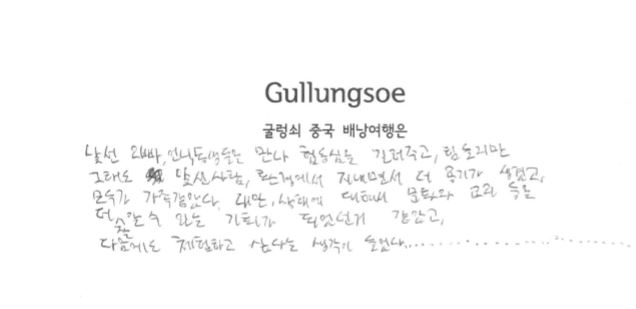 Gullungsoe
굴렁쇠 중국 배낭여행은
낯선 오빠, 언니, 동생들을 만나 협동심을 길러주고, 힘들지만
그래도 낯선사람, 환경에서 지내면서 더 용기가 생겼고,
모두가 가족같았다. 대만, 상해에 대해서 문화와 교과 등을
더 잘 알 수 있는 기회가 되었던거 같았고,
다음에도 체험하고 싶다는 생각이 들었다.